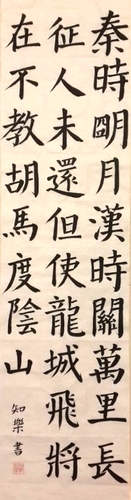 秦時明月漢時關萬里長
征人未還但使龍城飛將
在不教胡馬度陰山
知樂書